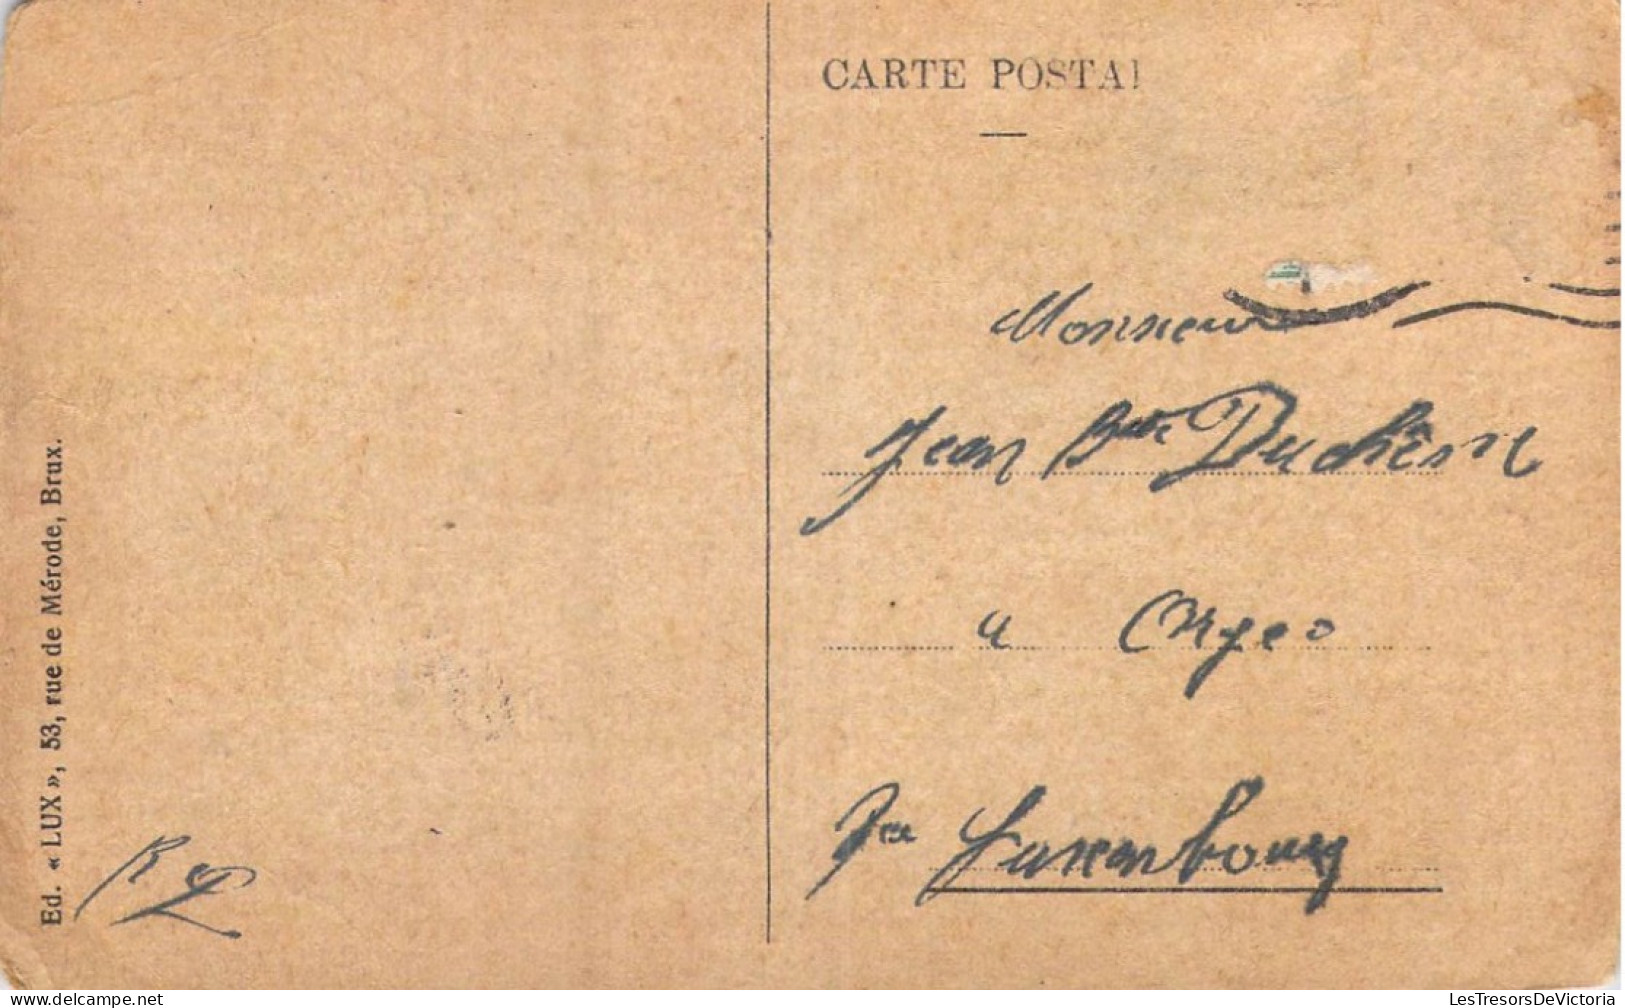 CARTE POSTAL
Monsieur
Jean Bte Duchêsne
a Orgeo
Luxembourg
Ed. « LUX », 53, rue de Mérode, Brux.
delcampe.net
LesTresorsDeVictoria